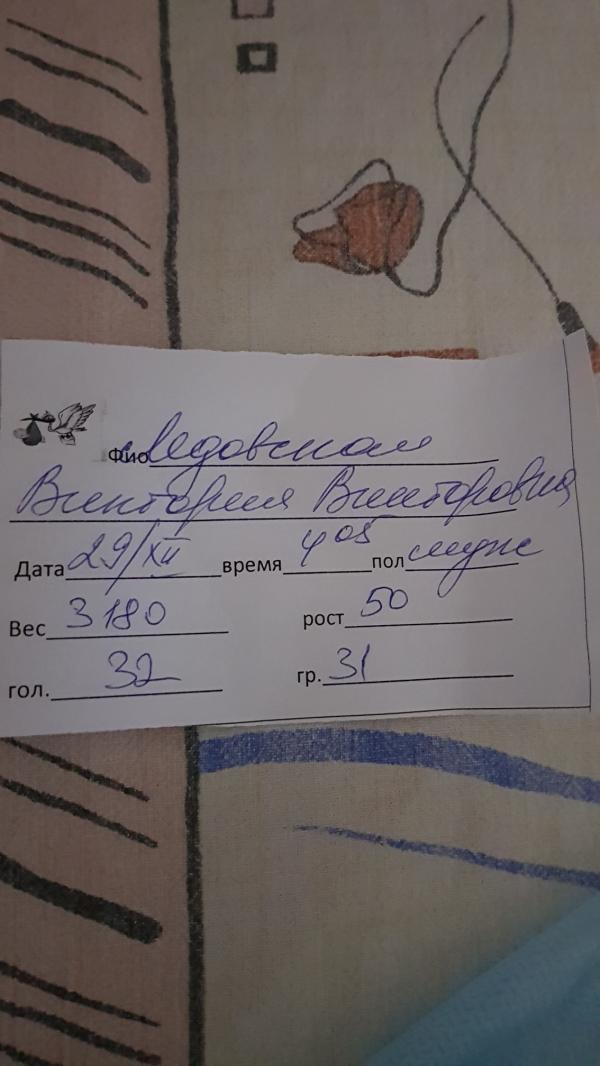 Фио Медовская
Виктория Викторовна
Дата 29/XII время 4 05 пол муж
Вес 3180 рост 50
гол. 32 гр. 31